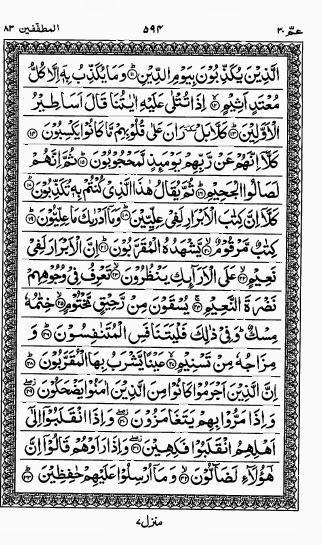 عمّ ٣٠ ٥٩٤ المطفّفين ٨٣
الَّذِيْنَ يُكَذِّبُوْنَ بِيَوْمِ الدِّيْنِ ۝ وَمَا يُكَذِّبُ بِهٖٓ اِلَّا كُلُّ
مُعْتَدٍ اَثِيْمٍ ۝ اِذَا تُتْلٰى عَلَيْهِ اٰيٰتُنَا قَالَ اَسَاطِيْرُ
الْاَوَّلِيْنَ ۝ كَلَّا بَلْ ۜ رَانَ عَلٰى قُلُوْبِهِمْ مَّا كَانُوْا يَكْسِبُوْنَ ۝
كَلَّآ اِنَّهُمْ عَنْ رَّبِّهِمْ يَوْمَئِذٍ لَّمَحْجُوْبُوْنَ ۝ ثُمَّ اِنَّهُمْ
لَصَالُوا الْجَحِيْمِ ۝ ثُمَّ يُقَالُ هٰذَا الَّذِيْ كُنْتُمْ بِهٖ تُكَذِّبُوْنَ ۝
كَلَّآ اِنَّ كِتٰبَ الْاَبْرَارِ لَفِيْ عِلِّيِّيْنَ ۝ وَمَآ اَدْرٰىكَ مَا عِلِّيُّوْنَ ۝
كِتٰبٌ مَّرْقُوْمٌ ۝ يَّشْهَدُهُ الْمُقَرَّبُوْنَ ۝ اِنَّ الْاَبْرَارَ لَفِيْ
نَعِيْمٍ ۝ عَلَى الْاَرَآئِكِ يَنْظُرُوْنَ ۝ تَعْرِفُ فِيْ وُجُوْهِهِمْ
نَضْرَةَ النَّعِيْمِ ۝ يُسْقَوْنَ مِنْ رَّحِيْقٍ مَّخْتُوْمٍ ۝ خِتٰمُهٗ
مِسْكٌ ؕ وَفِيْ ذٰلِكَ فَلْيَتَنَافَسِ الْمُتَنَافِسُوْنَ ۝ وَ
مِزَاجُهٗ مِنْ تَسْنِيْمٍ ۝ عَيْنًا يَّشْرَبُ بِهَا الْمُقَرَّبُوْنَ ۝
اِنَّ الَّذِيْنَ اَجْرَمُوْا كَانُوْا مِنَ الَّذِيْنَ اٰمَنُوْا يَضْحَكُوْنَ ۝
وَاِذَا مَرُّوْا بِهِمْ يَتَغَامَزُوْنَ ۝ وَاِذَا انْقَلَبُوْٓا اِلٰٓى
اَهْلِهِمُ انْقَلَبُوْا فَكِهِيْنَ ۝ وَاِذَا رَاَوْهُمْ قَالُوْٓا اِنَّ
هٰٓؤُلَآءِ لَضَآلُّوْنَ ۝ وَمَآ اُرْسِلُوْا عَلَيْهِمْ حٰفِظِيْنَ ۝
منزل ٧